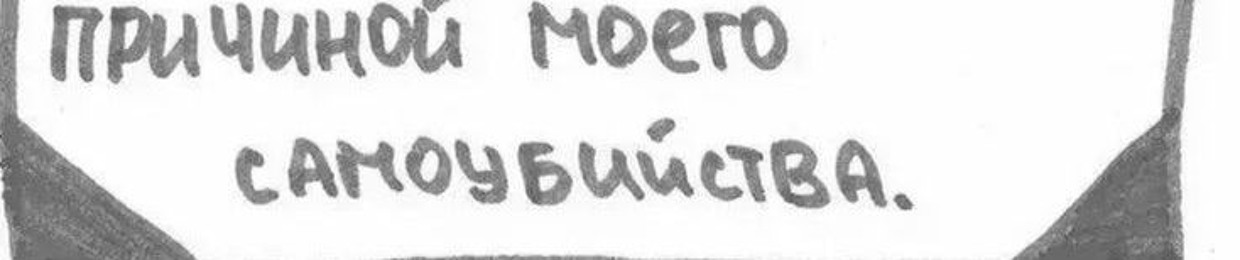 причиной моего
самоубийства.